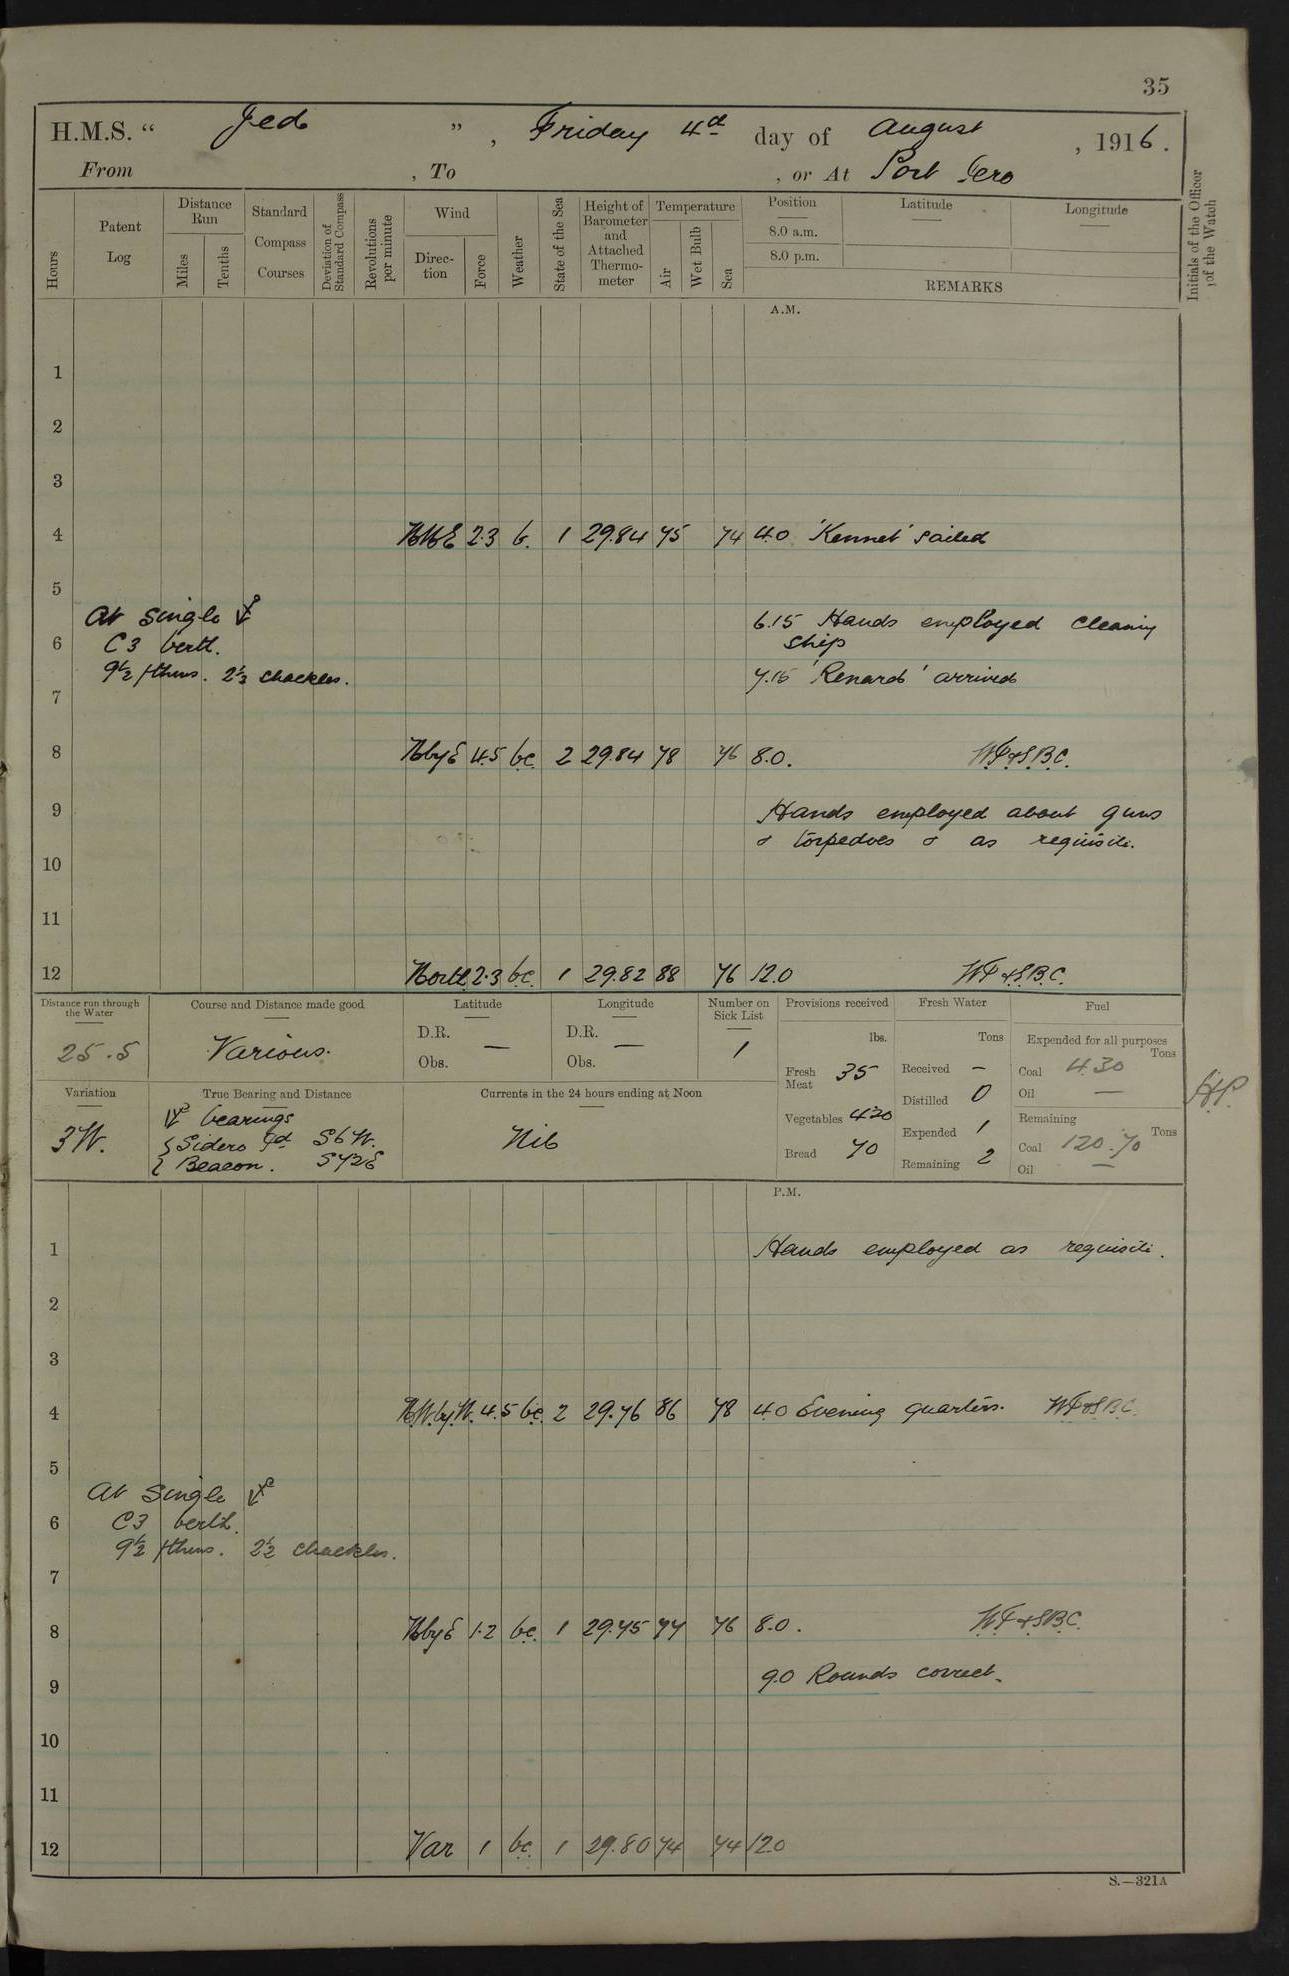 35
H.M.S. " Jed " , Friday 4th day of August , 1916.
From , To , or At Port Iero
Hours
Patent Log
Distance Run
Miles
Tenths
Standard Compass Courses
Deviation of Standard Compass
Revolutions per minute
Wind
Direction
Force
Weather
State of the Sea
Height of Barometer and Attached Thermometer
Temperature
Air
Wet Bulb
Sea
Position
8.0 a.m.
8.0 p.m.
Latitude
Longitude
REMARKS
Initials of the Officer of the Watch
A.M.
1
2
3
4 NNE 2.3 b. 1 29.84 75 74 4.0 'Kennet' sailed
5
At single
6.15 Hands employed cleaning
6 C3 berth.
ship
9½ fthms. 2½ shackles.
7.15 'Renard' arrived
7
8 NbyE 4.5 bc. 2 29.84 78 76 8.0. WT & S.B.C.
9 Hands employed about guns
& torpedoes & as requisite.
10
11
12 North 2.3 bc. 1 29.82 88 76 12.0 WT & S.B.C.
Distance run through the Water
25.5
Course and Distance made good
Various.
Latitude
D.R. —
Obs.
Longitude
D.R. —
Obs.
Number on Sick List
1
Provisions received
lbs.
Fresh Meat 35
Vegetables 420
Bread 70
Fresh Water
Tons
Received –
Distilled 0
Expended 1
Remaining 2
Fuel
Expended for all purposes
Tons
Coal 4.30
Oil —
Remaining
Tons
Coal 120.70
Oil —
Variation
3W.
True Bearing and Distance
bearings
Sidero Id S6W.
Beacon. S72E
Currents in the 24 hours ending at Noon
Nil
P.M.
1 Hands employed as requisite.
2
3
4 NW.by W. 4.5 bc. 2 29.76 86 78 4.0 Evening quarters. WT & S.B.C.
5
At single
6 C3 berth.
9½ fthms. 2½ shackles.
7
8 NbyE 1.2 bc. 1 29.75 77 76 8.0. WT & S.B.C.
9 9.0 Rounds correct.
10
11
12 Var 1 bc. 1 29.80 74 74 12.0
S.—321A